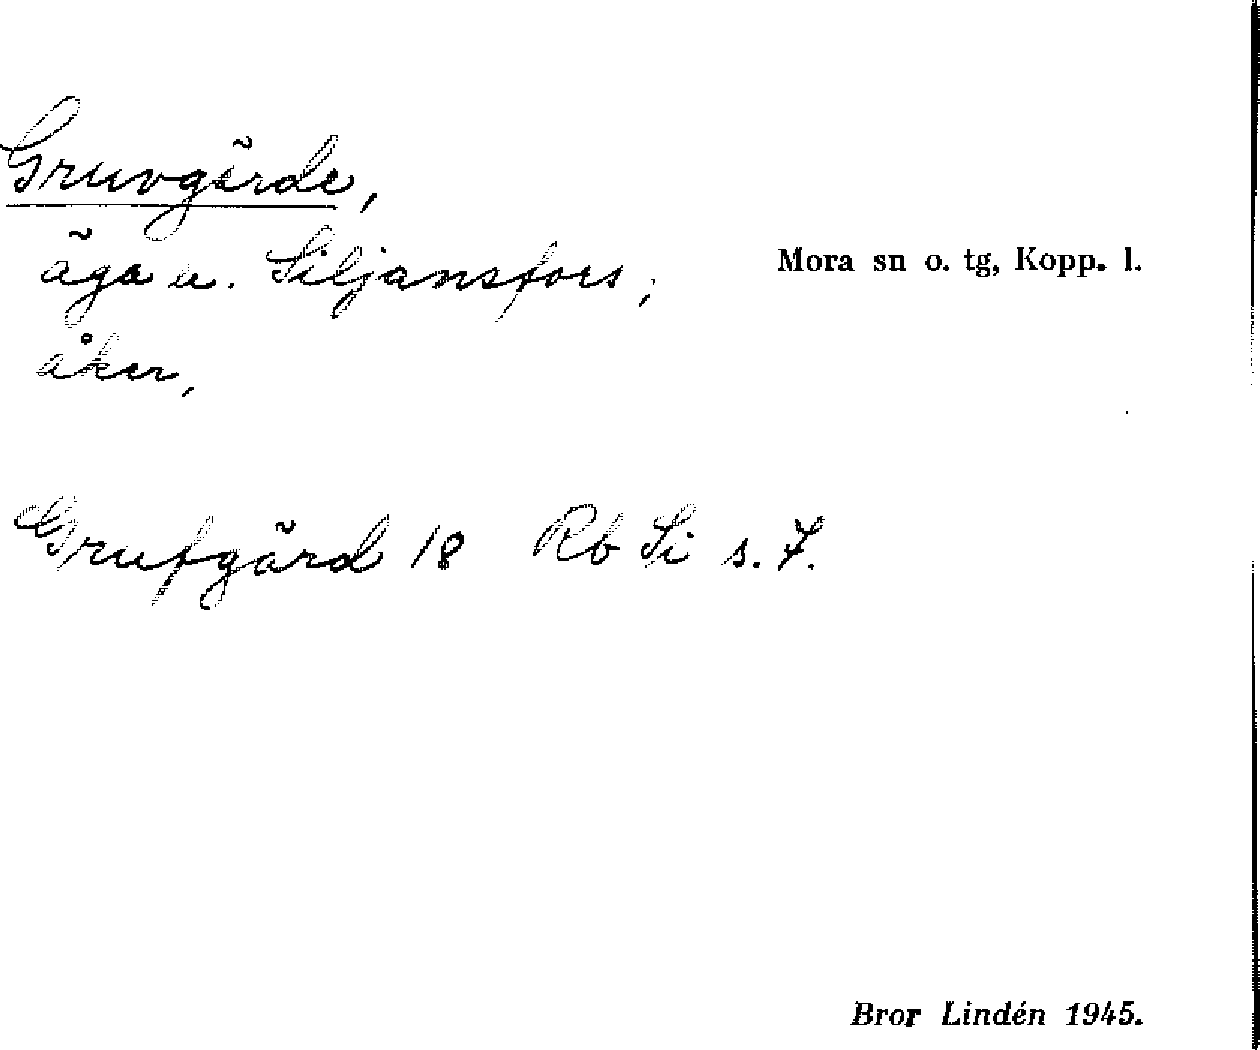 Gruvgärde,
äga u. Siljansfors;
Mora sn o. tg, Kopp. l.
åker,
Grufgärd 18 Rb Si s. 7.
Bror Lindén 1945.